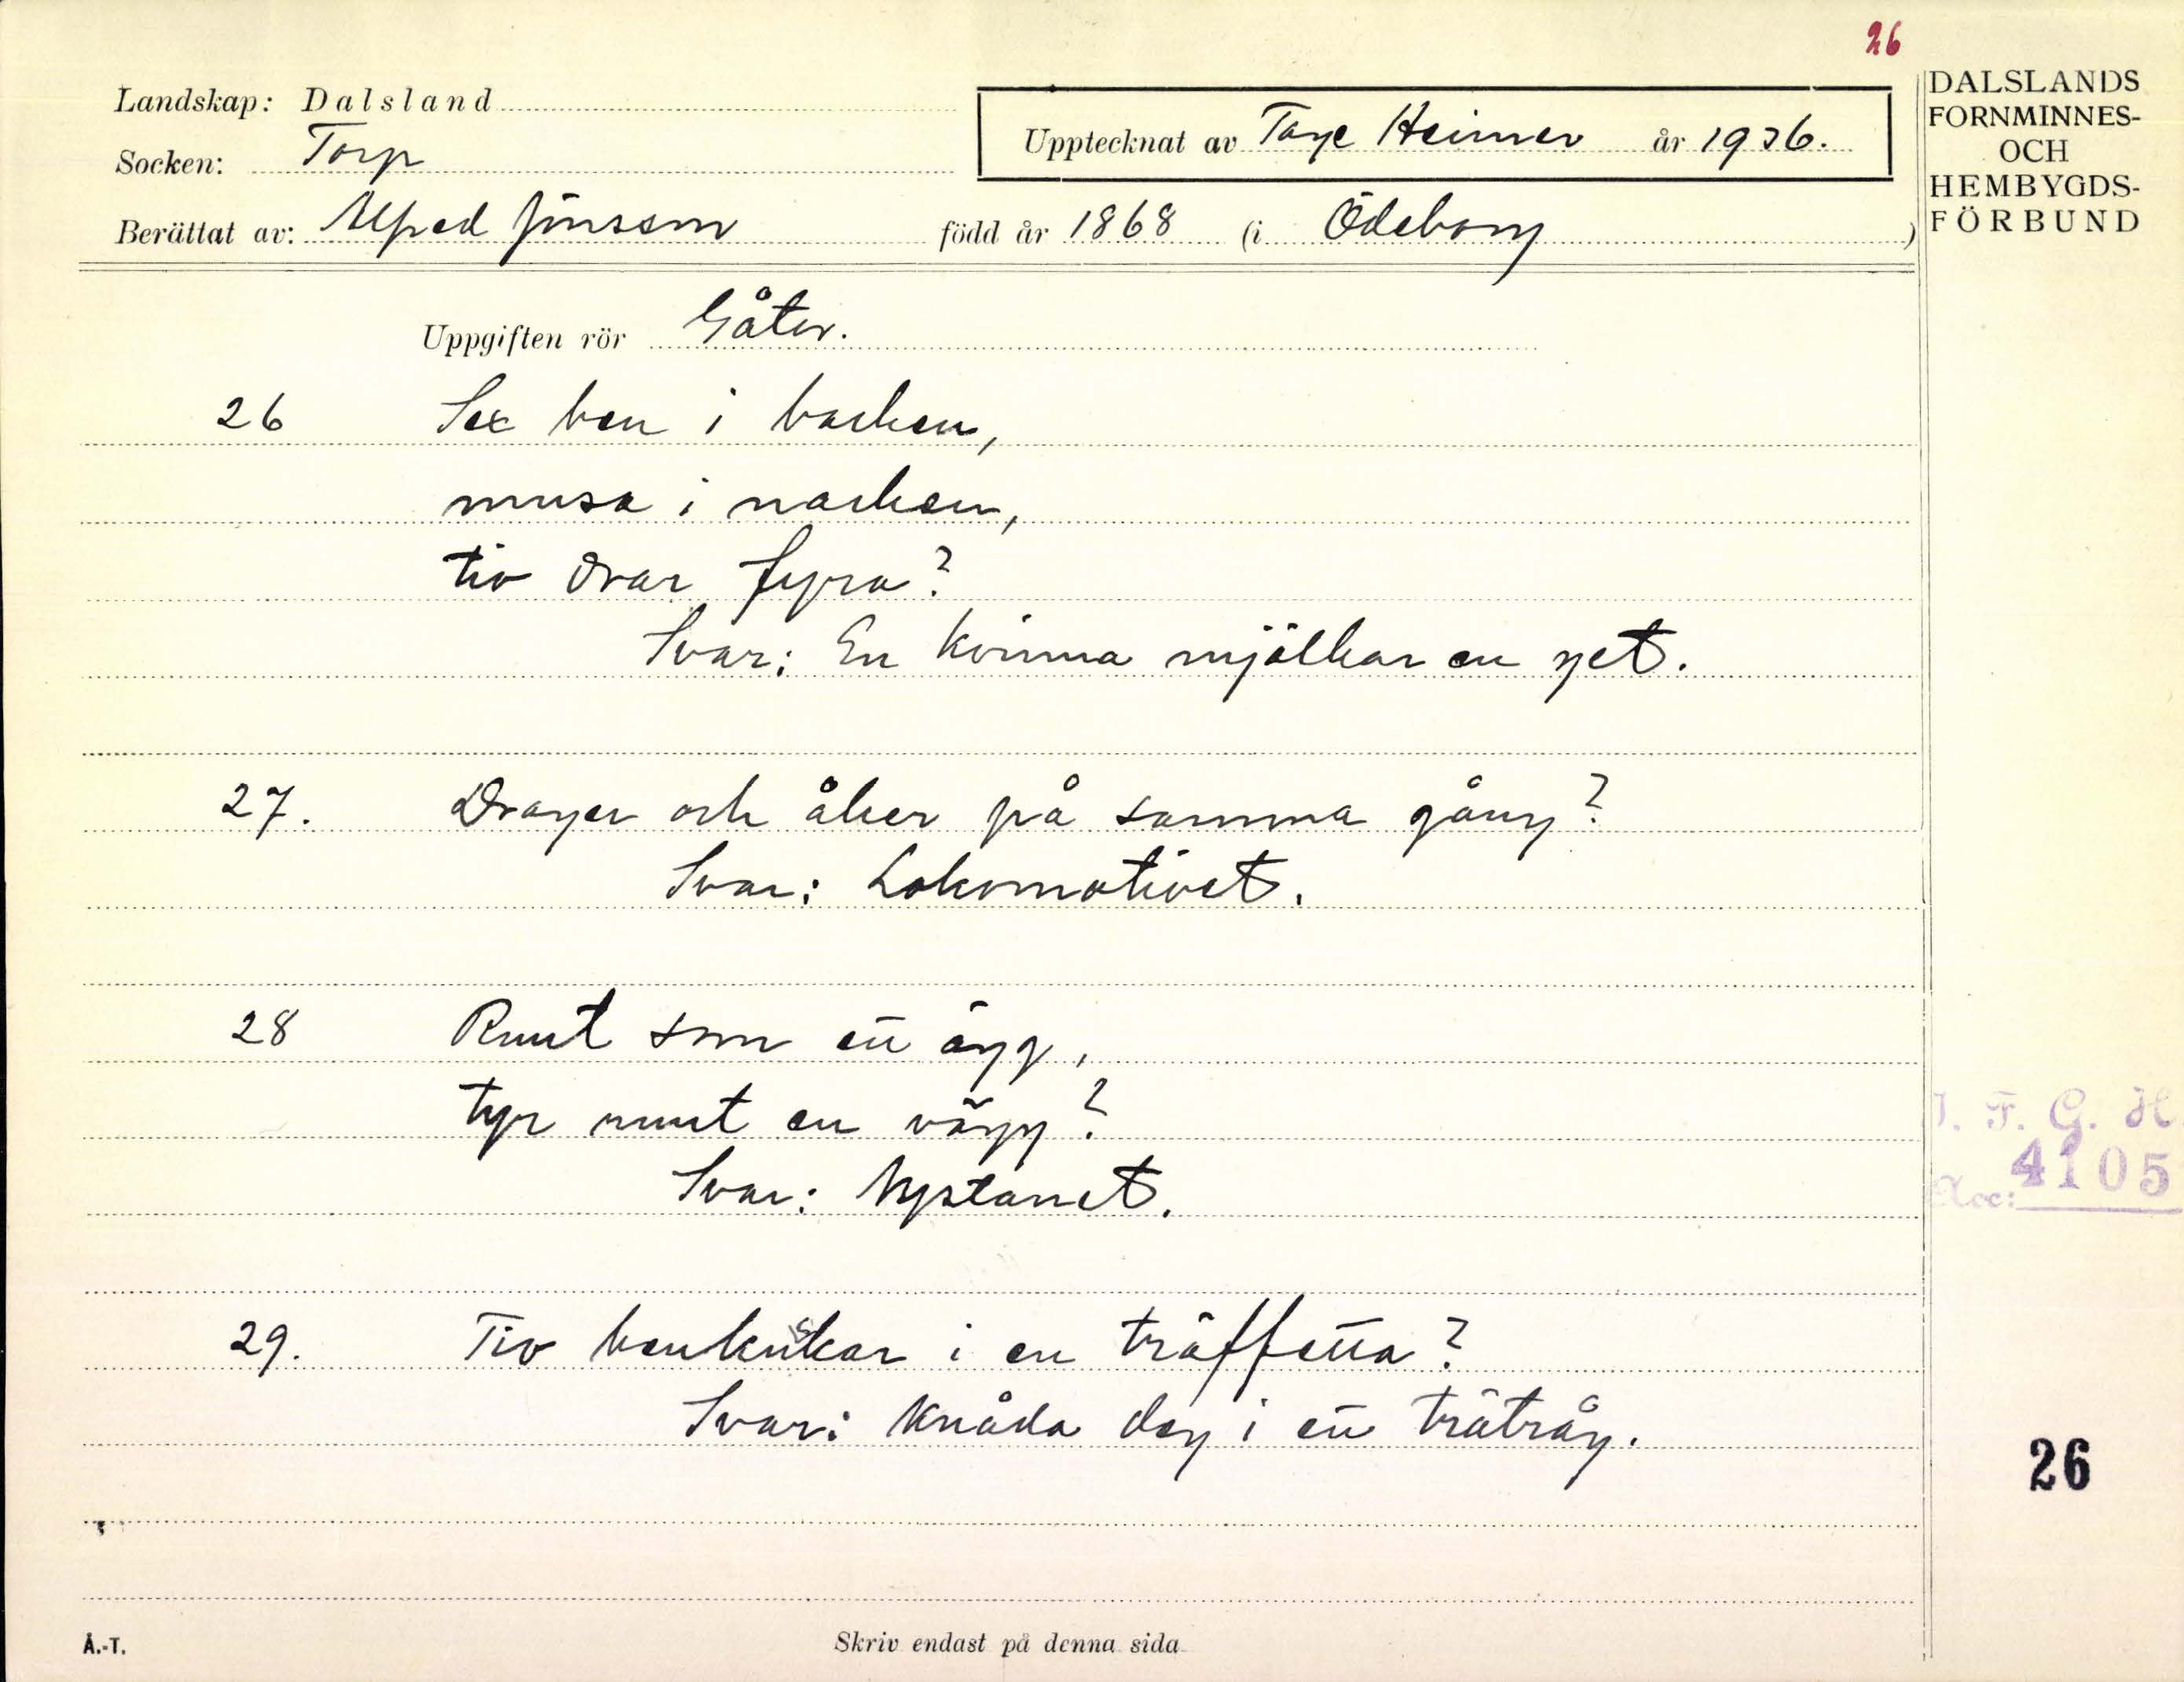 26
Landskap: Dalsland
Socken: Torp
Upptecknat av Tage Heimer år 1936.
Berättat av: Alfred Jönsson född år 1868 (i Ödeborg)
DALSLANDS
FORNMINNES-
OCH
HEMBYGDS-
FÖRBUND
Uppgiften rör Gåtor.
26 Sex ben i backen,
musa i nacken,
tio drar fyra?
Svar: En kvinna mjölkar en get.
27. Drager och åker på samma gång?
Svar: Lokomotivet.
28 Runt som ett ägg,
tyr runt en vägg?
Svar: Nystanet.
29. Tio i en träffetta?
Svar: Knåda deg i ett tråtråg.
I. F. G. H.
Acc: 4105
26
Å.-T.
Skriv endast på denna sida